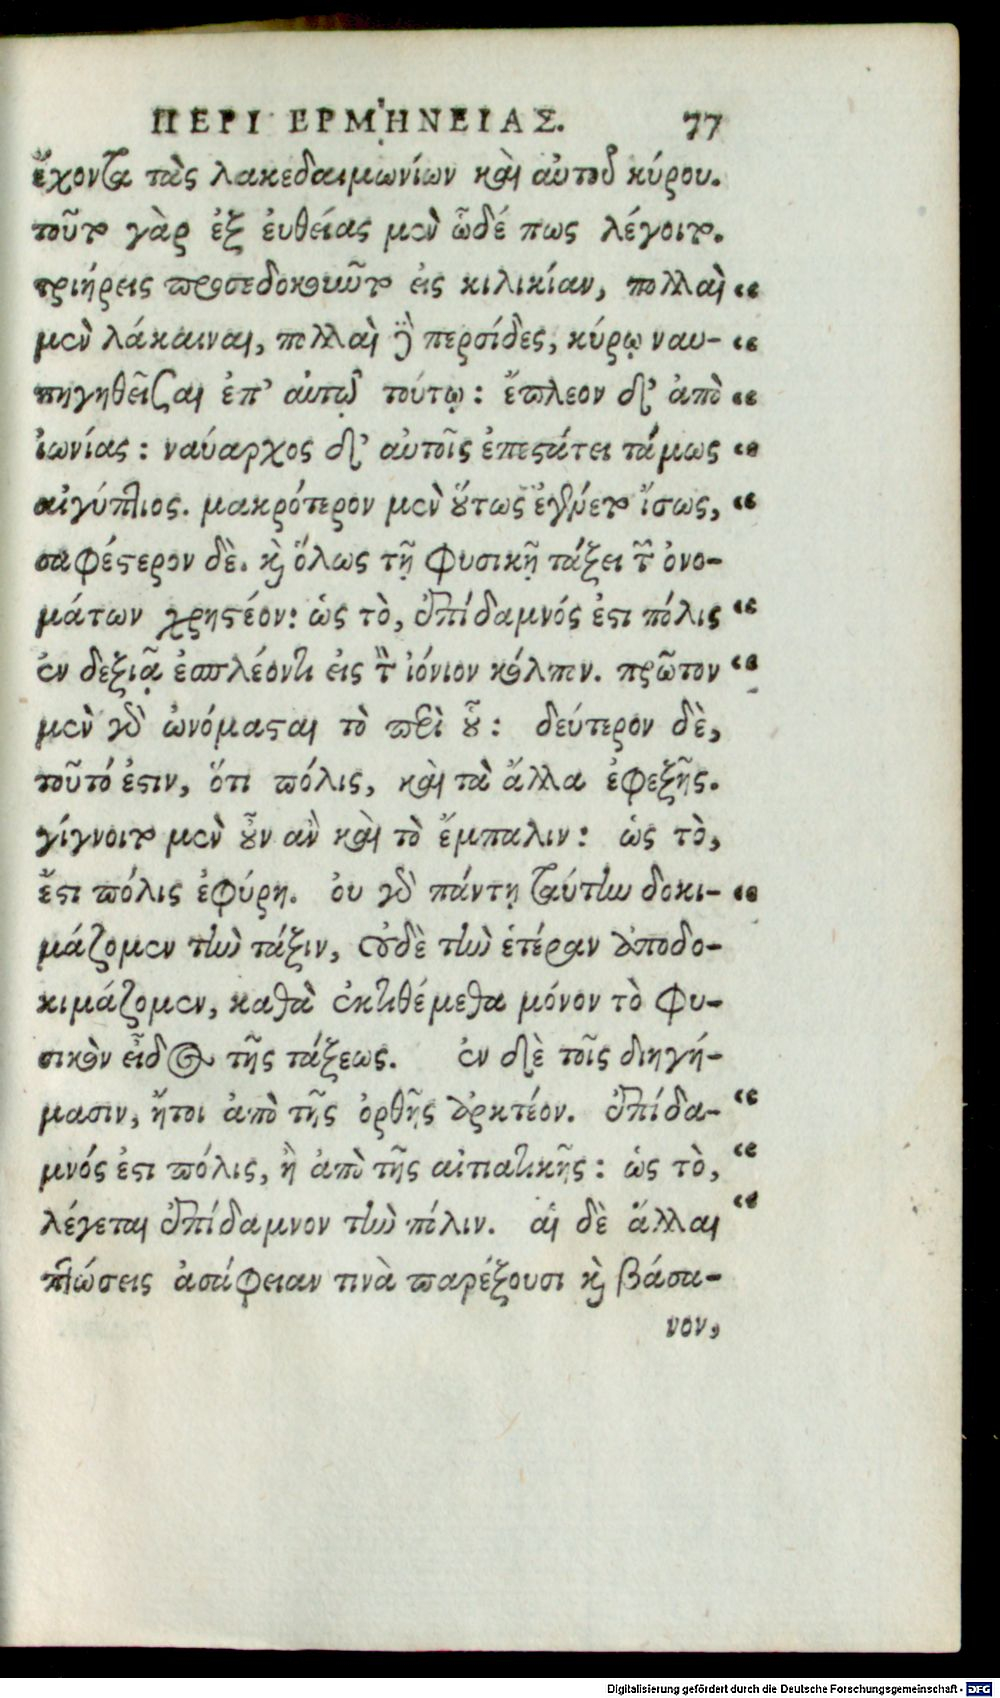 ΠΕΡΙ ΕΡΜΗΝΕΙΑΣ. 77
ἔχοντα τὰς λακεδαιμωνίων καὶ αὐτοῦ κύρου.
τοῦτο γὰρ ἐξ ἐυθείας μὲν ὧδέ πως λέγοιτο.
τριήρεις προσεδοκῶντο εἰς κιλικίαν, πολλαὶ “
μὲν λάκαιναι, πολλαὶ δὲ περσίδες, κύρῳ ναυ- “
πηγηθεῖσαι ἐπ’ αὐτῷ τούτῳ: ἔπλεον δ’ ἀπὸ “
ἰωνίας: ναύαρχος δ’ αὐτοῖς ἐπεστάτει τάμως “
αἰγύπτιος. μακρότερον μὲν οὕτως ἐγένετο ἴσως, “
σαφέστερον δὲ. καὶ ὅλως τῇ φυσικῇ τάξει τῶν ὀνο-
μάτων χρηστέον: ὡς τὸ, ἐπίδαμνός ἐστι πόλις “
ἐν δεξιᾷ ἐσπλέοντι εἰς τὸν ἰόνιον κόλπον. πρῶτον “
μὲν γὰρ ὠνόμασται τὸ περὶ οὗ: δεύτερον δὲ,
τοῦτό ἐστιν, ὅτι πόλις, καὶ τὰ ἄλλα ἐφεξῆς.
γίγνοιτο μὲν οὖν ἂν καὶ τὸ ἔμπαλιν: ὡς τὸ,
ἔστι πόλις ἐφύρη. ὀυ γὰρ πάντῃ ταύτην δοκι- “
μάζομεν τὴν τάξιν, οὐδὲ τὴν ἑτέραν ἀποδο-
κιμάζομεν, καθὰ ἐκτιθέμεθα μόνον τὸ φυ-
σικὸν εἶδος τῆς τάξεως. ἐν δὲ τοῖς διηγή-
μασιν, ἤτοι ἀπὸ τῆς ὀρθῆς ἀρκτέον. ἐπίδα- “
μνός ἐστι πόλις, ἢ ἀπὸ τῆς αἰτιατικῆς: ὡς τὸ, “
λέγεται ἐπίδαμνον τὴν πόλιν. αἱ δὲ ἄλλαι “
πτώσεις ἀσάφειαν τινὰ παρέξουσι καὶ βάσα-
νον,
Digitalisierung gefördert durch die Deutsche Forschungsgemeinschaft - DFG